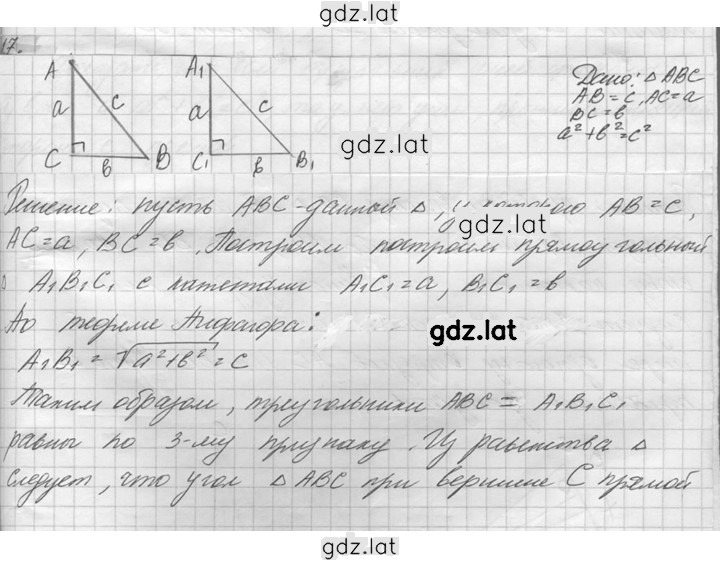 gdz.lat
17.
A A₁
a c a c
C b B C₁ b B₁
gdz.lat
Дано: △ ABC
AB = c, AC = a
BC = b
a² + b² = c²
Решение: пусть ABC - данный △, у которого AB = c,
gdz.lat
AC = a, BC = b. Построим построим прямоугольный
△ A₁B₁C₁ с катетами A₁C₁ = a, B₁C₁ = b
По теореме Пифагора:
gdz.lat
A₁B₁ = √a² + b² = c
Таким образом, треугольники ABC = A₁B₁C₁
равны по 3-му признаку. Из равенства △
следует, что угол △ ABC при вершине C прямой
gdz.lat